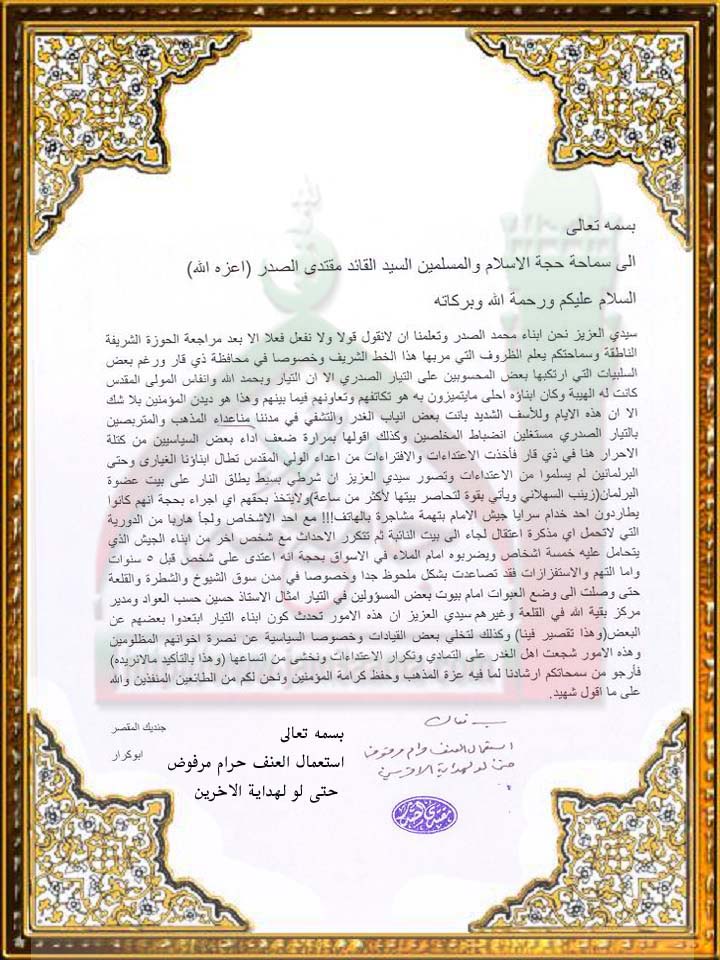 بسمه تعالى
الى سماحة حجة الاسلام والمسلمين السيد القائد مقتدى الصدر (اعزه الله)
السلام عليكم ورحمة الله وبركاته
سيدي العزيز نحن ابناء محمد الصدر وتعلمنا ان لانقول قولا ولا نفعل فعلا الا بعد مراجعة الحوزة الشريفة
الناطقة وسماحتكم يعلم الظروف التي مربها هذا الخط الشريف وخصوصا في محافظة ذي قار ورغم بعض
السلبيات التي ارتكبها بعض المحسوبين على التيار الصدري الا ان التيار وبحمد الله وانفاس المولى المقدس
كانت له الهيبة وكان ابناؤه احلى مايتميزون به هو تكاتفهم وتعاونهم فيما بينهم وهذا هو ديدن المؤمنين بلا شك
الا ان هذه الايام وللأسف الشديد بانت بعض انياب الغدر والتشفي في مدننا مناعداء المذهب والمتربصين
بالتيار الصدري مستغلين انضباط المخلصين وكذلك اقولها بمرارة ضعف اداء بعض السياسيين من كتلة
الاحرار هنا في ذي قار فأخذت الاعتداءات والافتراءات من اعداء الولي المقدس تطال ابناؤنا الغيارى وحتى
البرلمانين لم يسلموا من الاعتداءات وتصور سيدي العزيز ان شرطي بسيط يطلق النار على بيت عضوة
البرلمان(زينب السهلاني ويأتي بقوة لتحاصر بيتها لأكثر من ساعة)ولايتخذ بحقهم اي اجراء بحجة انهم كانوا
يطاردون احد خدام سرايا جيش الامام بتهمة مشاجرة بالهاتف!!! مع احد الاشخاص ولجأ هاربا من الدورية
التي لاتحمل اي مذكرة اعتقال لجاء الى بيت النائبة ثم تتكرر الاحداث مع شخص اخر من ابناء الجيش الذي
يتحامل عليه خمسة اشخاص ويضربوه امام الملاء في الاسواق بحجة انه اعتدى على شخص قبل ٥ سنوات
واما التهم والاستفزازات فقد تصاعدت بشكل ملحوظ جدا وخصوصا في مدن سوق الشيوخ والشطرة والقلعة
حتى وصلت الى وضع العبوات امام بيوت بعض المسؤولين في التيار امثال الاستاذ حسين حسب العواد ومدير
مركز بقية الله في القلعة وغيرهم سيدي العزيز ان هذه الامور تحدث كون ابناء التيار ابتعدوا بعضهم عن
البعض(وهذا تقصير فينا) وكذلك لتخلي بعض القيادات وخصوصا السياسية عن نصرة اخوانهم المظلومين
وهذه الامور شجعت اهل الغدر على التمادي وتكرار الاعتداءات ونخشى من اتساعها (وهذا بالتأكيد مالانريده)
فأرجو من سماحتكم ارشادنا لما فيه عزة المذهب وحفظ كرامة المؤمنين ونحن لكم من الطائعين المنفذين والله
على ما اقول شهيد.
جنديك المقصر
ابوكرار
بسمه تعالى
استعمال العنف حرام مرفوض
حتى لو لهداية الاخرين
بسمه تعالى
استعمال العنف حرام مرفوض
حتى لو لهداية الاخرين
مقتدى الصدر